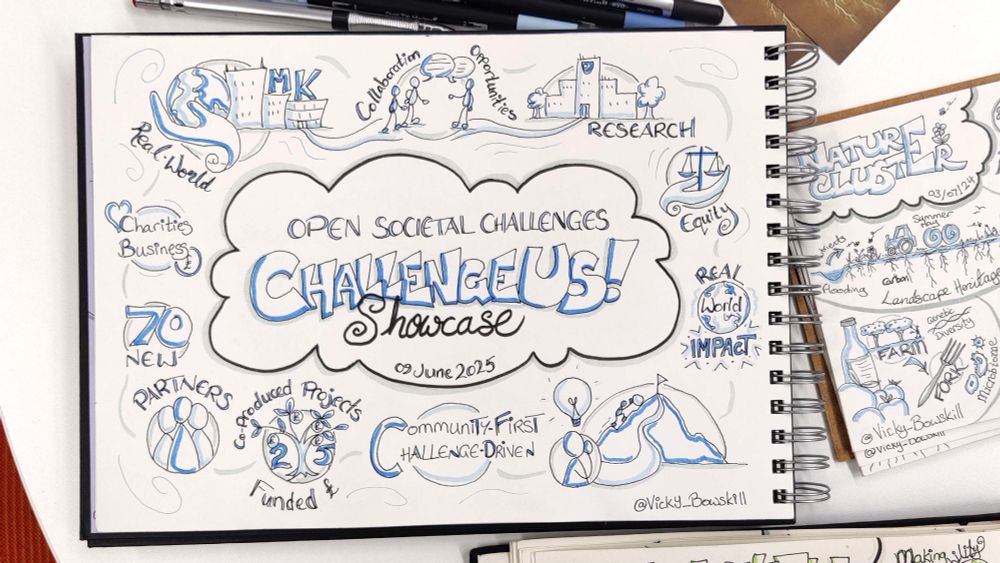 MK
Real-World
Collaboration
Opportunities
RESEARCH
Charities
Business
OPEN SOCIETAL CHALLENGES
CHALLENGE US!
Showcase
09 June 2025
Equity
REAL
World
IMPACT
70
NEW
PARTNERS
Co-Produced Projects
25
Funded £
COMMUNITY-FIRST
CHALLENGE-DRIVEN
@Vicky_Bowskill
NATURE
CLUSTER
03/07/24
Summer
flooding
carbon
Landscape Heritage
Genetic
Diversity
FARM
FORK
microbiome
@Vicky-Bowskill
Making